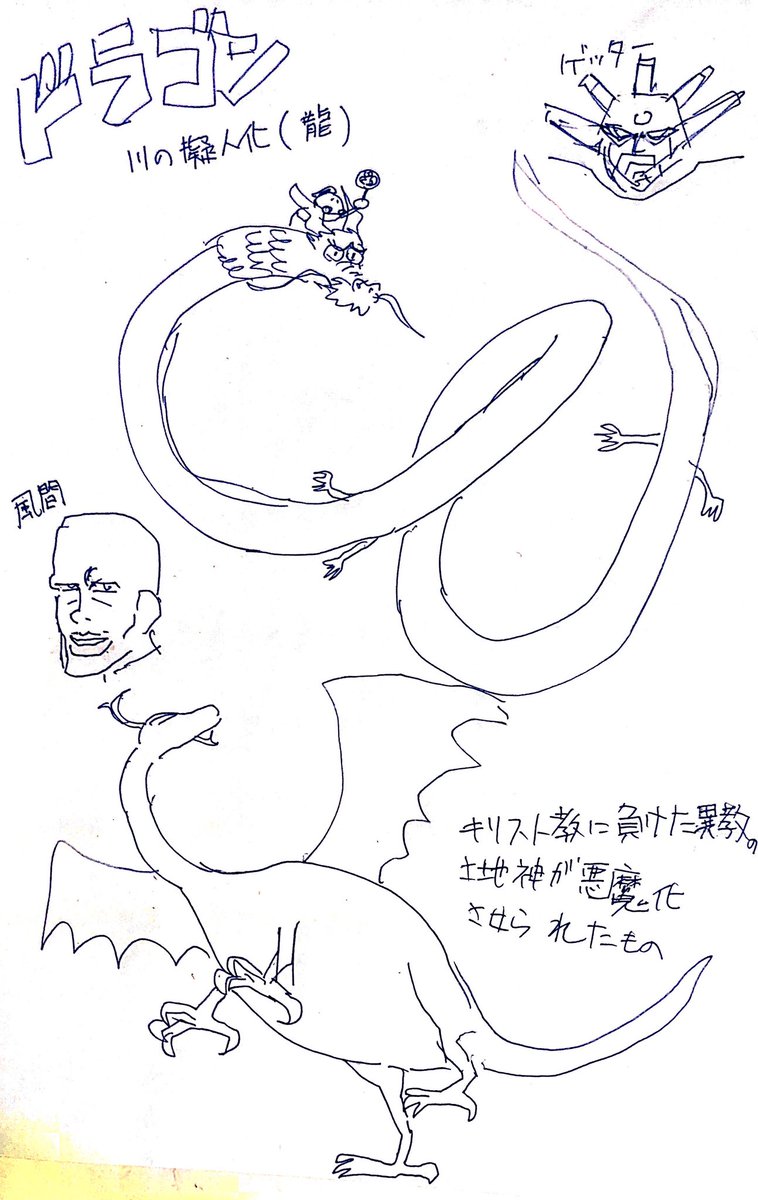 ドラゴン
ゲッター
川の擬人化(龍)
風間
キリスト教に負けた異教の
土地神が悪魔化
させられたもの